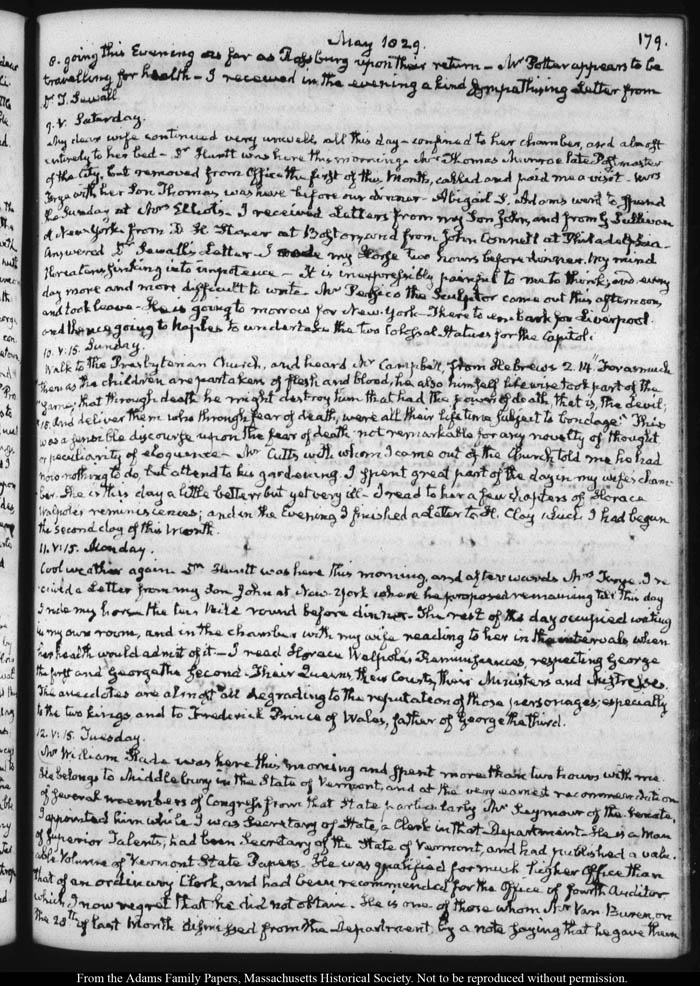 May 1829.
179.
8. going this Evening as far as Rossburg upon their return - Mr Potter appears to be
travelling for health - I received in the evening a kind Sympathising Letter from
Dr T. Sewall.
9. V. Saturday.
My dear wife continued very unwell all this day - confined to her chamber, and almost
entirely to her bed - Dr Huntt was here this morning. Mr Thomas Munroe late Postmaster
of the City, but removed from Office the first of this Month, called and paid me a visit - Mrs
Frye with her Son Thomas was here before our dinner - Abigail S. Adams went to spend
the Sunday at Mrs Elliot's - I received Letters from my Son John, and from G Sullivan
at New-York, from at Boston, and from John Connell at Philadelphia.
Answered Dr Sewall's Letter - I rode my Horse two hours before dinner. My mind
threatens sinking into impotence - It is inexpressibly painful to me to think; and every
day more and more difficult to write - Mr Persico the Sculptor came out this afternoon,
and took leave - He is going to morrow for New-York - There to embark for Liverpool.
and thence going to Naples to undertake the two Colossal Statues for the Capitol.
10. V:15. Sunday.
Walk to the Presbyterian Church, and heard Mr Campbell, from Hebrews 2. 14 "Forasmuch
"then as the children are partakers of flesh and blood, he also himself likewise took part of the
"same; that through death he might destroy him that had the power of death, that is, the devil;
"15. And deliver them who through fear of death, were all their lifetime subject to bondage." This
was a sensible discourse upon the fear of death not remarkable for any novelty of thought
or peculiarity of eloquence - Mr Cutts with whom I came out of the Church, told me he had
now nothing to do, but attend to his gardening. I spent great part of the day in my wife's cham-
ber. She is this day a little better but yet very ill - I read to her a few chapters of Horace
Walpole's reminiscences; and in the Evening I finished a Letter to H. Clay which I had begun
the second day of this Month.
11. V:15. Monday.
Cool weather again. Dr Huntt was here this morning, and afterwards Mrs Frye. I re-
ceived a Letter from my Son John at New-York where he proposed remaining till this day
I rode my horse the ten Mile round before dinner. The rest of the day occupied writing
in my own room, and in the chamber with my wife reading to her in the intervals when
her health would admit of it - I read Horace Walpole's Reminiscences, respecting George
the first and George the Second - Their Queens, their Courts, their Ministers and Mistresses.
The anecdotes are almost all degrading to the reputation of those personages; especially
to the two kings and to Frederick Prince of Wales, father of George the third.
12. V:15. Tuesday.
Mr William Slade was here this morning and spent more than two hours with me.
He belongs to Middlebury in the State of Vermont, and at the very earnest recommendation
of several members of Congress from that State particularly Mr Seymour of the Senate,
I appointed him while I was Secretary of State, a Clerk in that Department. He is a Man
of Superior Talents, had been Secretary of the State of Vermont, and had published a valu-
able Volume of Vermont State Papers. He was qualified for much higher Office than
that of an ordinary Clerk, and had been recommended for the Office of fourth Auditor
which I now regret that he did not obtain. He is one of those whom Mr Van Buren, on
the 20th of last Month dismissed from the Department, by a note saying that he gave them
From the Adams Family Papers, Massachusetts Historical Society. Not to be reproduced without permission.